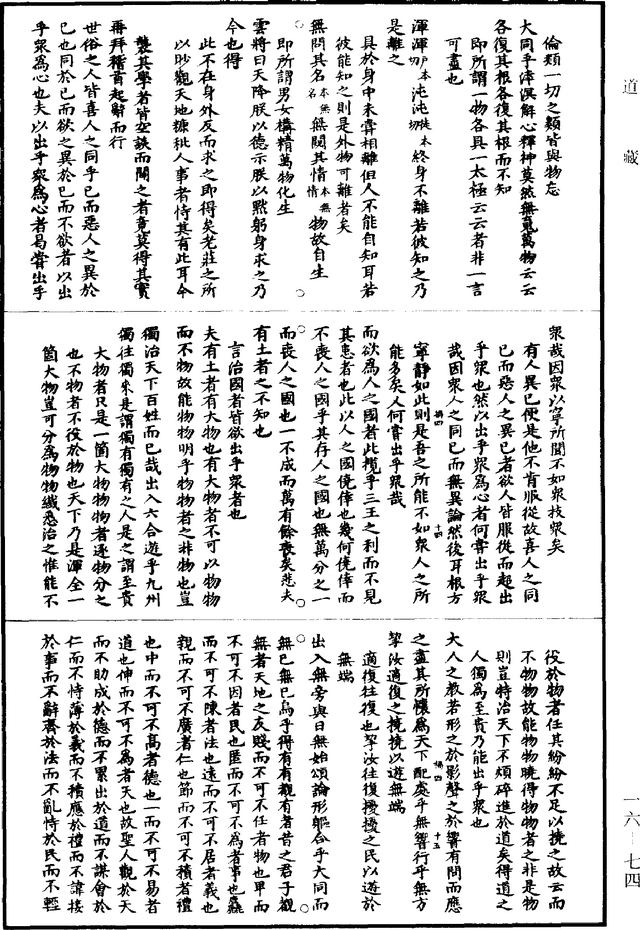 道藏
倫類一切之類皆與物忘
大同乎涬溟解心釋神莫然無䰟萬物云云
各復其根各復其根而不知
即所謂一物各具一太極云云者非一言
可盡也
渾渾沌沌終身不離若彼知之乃
是離之
具於身中未嘗相離但人不能自知耳若
彼能知之則是外物可離者矣
無問其名無闚其情物故自生
即所謂男女構精萬物化生
雲將曰天降朕以德示朕以默躬身求之乃
今也得
此不在身外反而求之即得矣老莊之所
以眇觀天地糠粃人事者恃其有此耳今
襲其學者皆空談而聞之者竟莫得其實
再拜稽首起辭而行
世俗之人皆喜人之同乎已而惡人之異於
已也同於已而欲之異於已而不欲者以出
乎衆爲心也夫以出乎衆爲心者曷嘗出乎
衆哉因衆以寧所聞不如衆技衆矣
有人異已便是他不肯服從故喜人之同
已而惡人之異已者欲人皆服從而超出
乎衆也然以出乎衆爲心者何嘗出乎衆
哉因衆人之同已而無異論然後耳根方
寧靜如此則是吾之所能不如衆人之所
能多矣人何嘗出乎衆哉
而欲爲人之國者此攬乎三王之利而不見
其患者也此以人之國僥倖也幾何僥倖而
不喪人之國乎其存人之國也無萬分之一
而喪人之國也一不成而萬有餘喪矣悲夫
有土者之不知也
言治國者皆欲出乎衆者也
夫有土者有大物也有大物者不可以物物
而不物故能物物明乎物物者之非物也豈
獨治天下百姓而已哉出入六合遊乎九州
獨往獨來是謂獨有獨有之人是之謂至貴
大物者只是一箇大物物物者逐物分之
也不物者不役於物也天下乃是渾全一
箇大物豈可分爲物物纖悉治之惟能不
役於物者任其紛紛不足以撓之故云而
不物物故能物物曉得物物者之非是物
則豈特治天下不煩碎進於道矣得道之
人獨爲至貴乃能出乎衆也
大人之教若形之於影聲之於響有問而應
之盡其所懷爲天下配處乎無響行乎無方
挈汝適復之撓撓以遊無端
適復往復也挈汝往復擾擾之民以遊於
無端
出入無旁與日無始頌論形軀合乎大同而
無已無已烏乎得有有覩有者昔之君子覩
無者天地之友賤而不可不任者物也卑而
不可不因者民也匿而不可不爲者事也麤
而不可不陳者法也遠而不可不居者義也
親而不可不廣者仁也節而不可不積者禮
也中而不可不高者德也一而不可不易者
道也伸而不可不爲者天也故聖人觀於天
而不助成於德而不累出於道而不謀會於
仁而不恃薄於義而不積應於禮而不諱接
於事而不辭齊於法而不亂恃於民而不輕
一六－七四